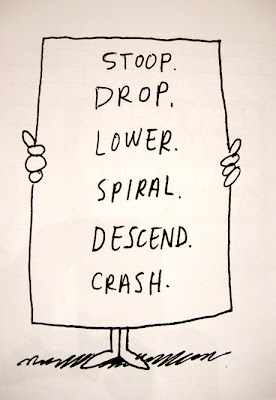 STOOP.
DROP.
LOWER.
SPIRAL.
DESCEND.
CRASH.